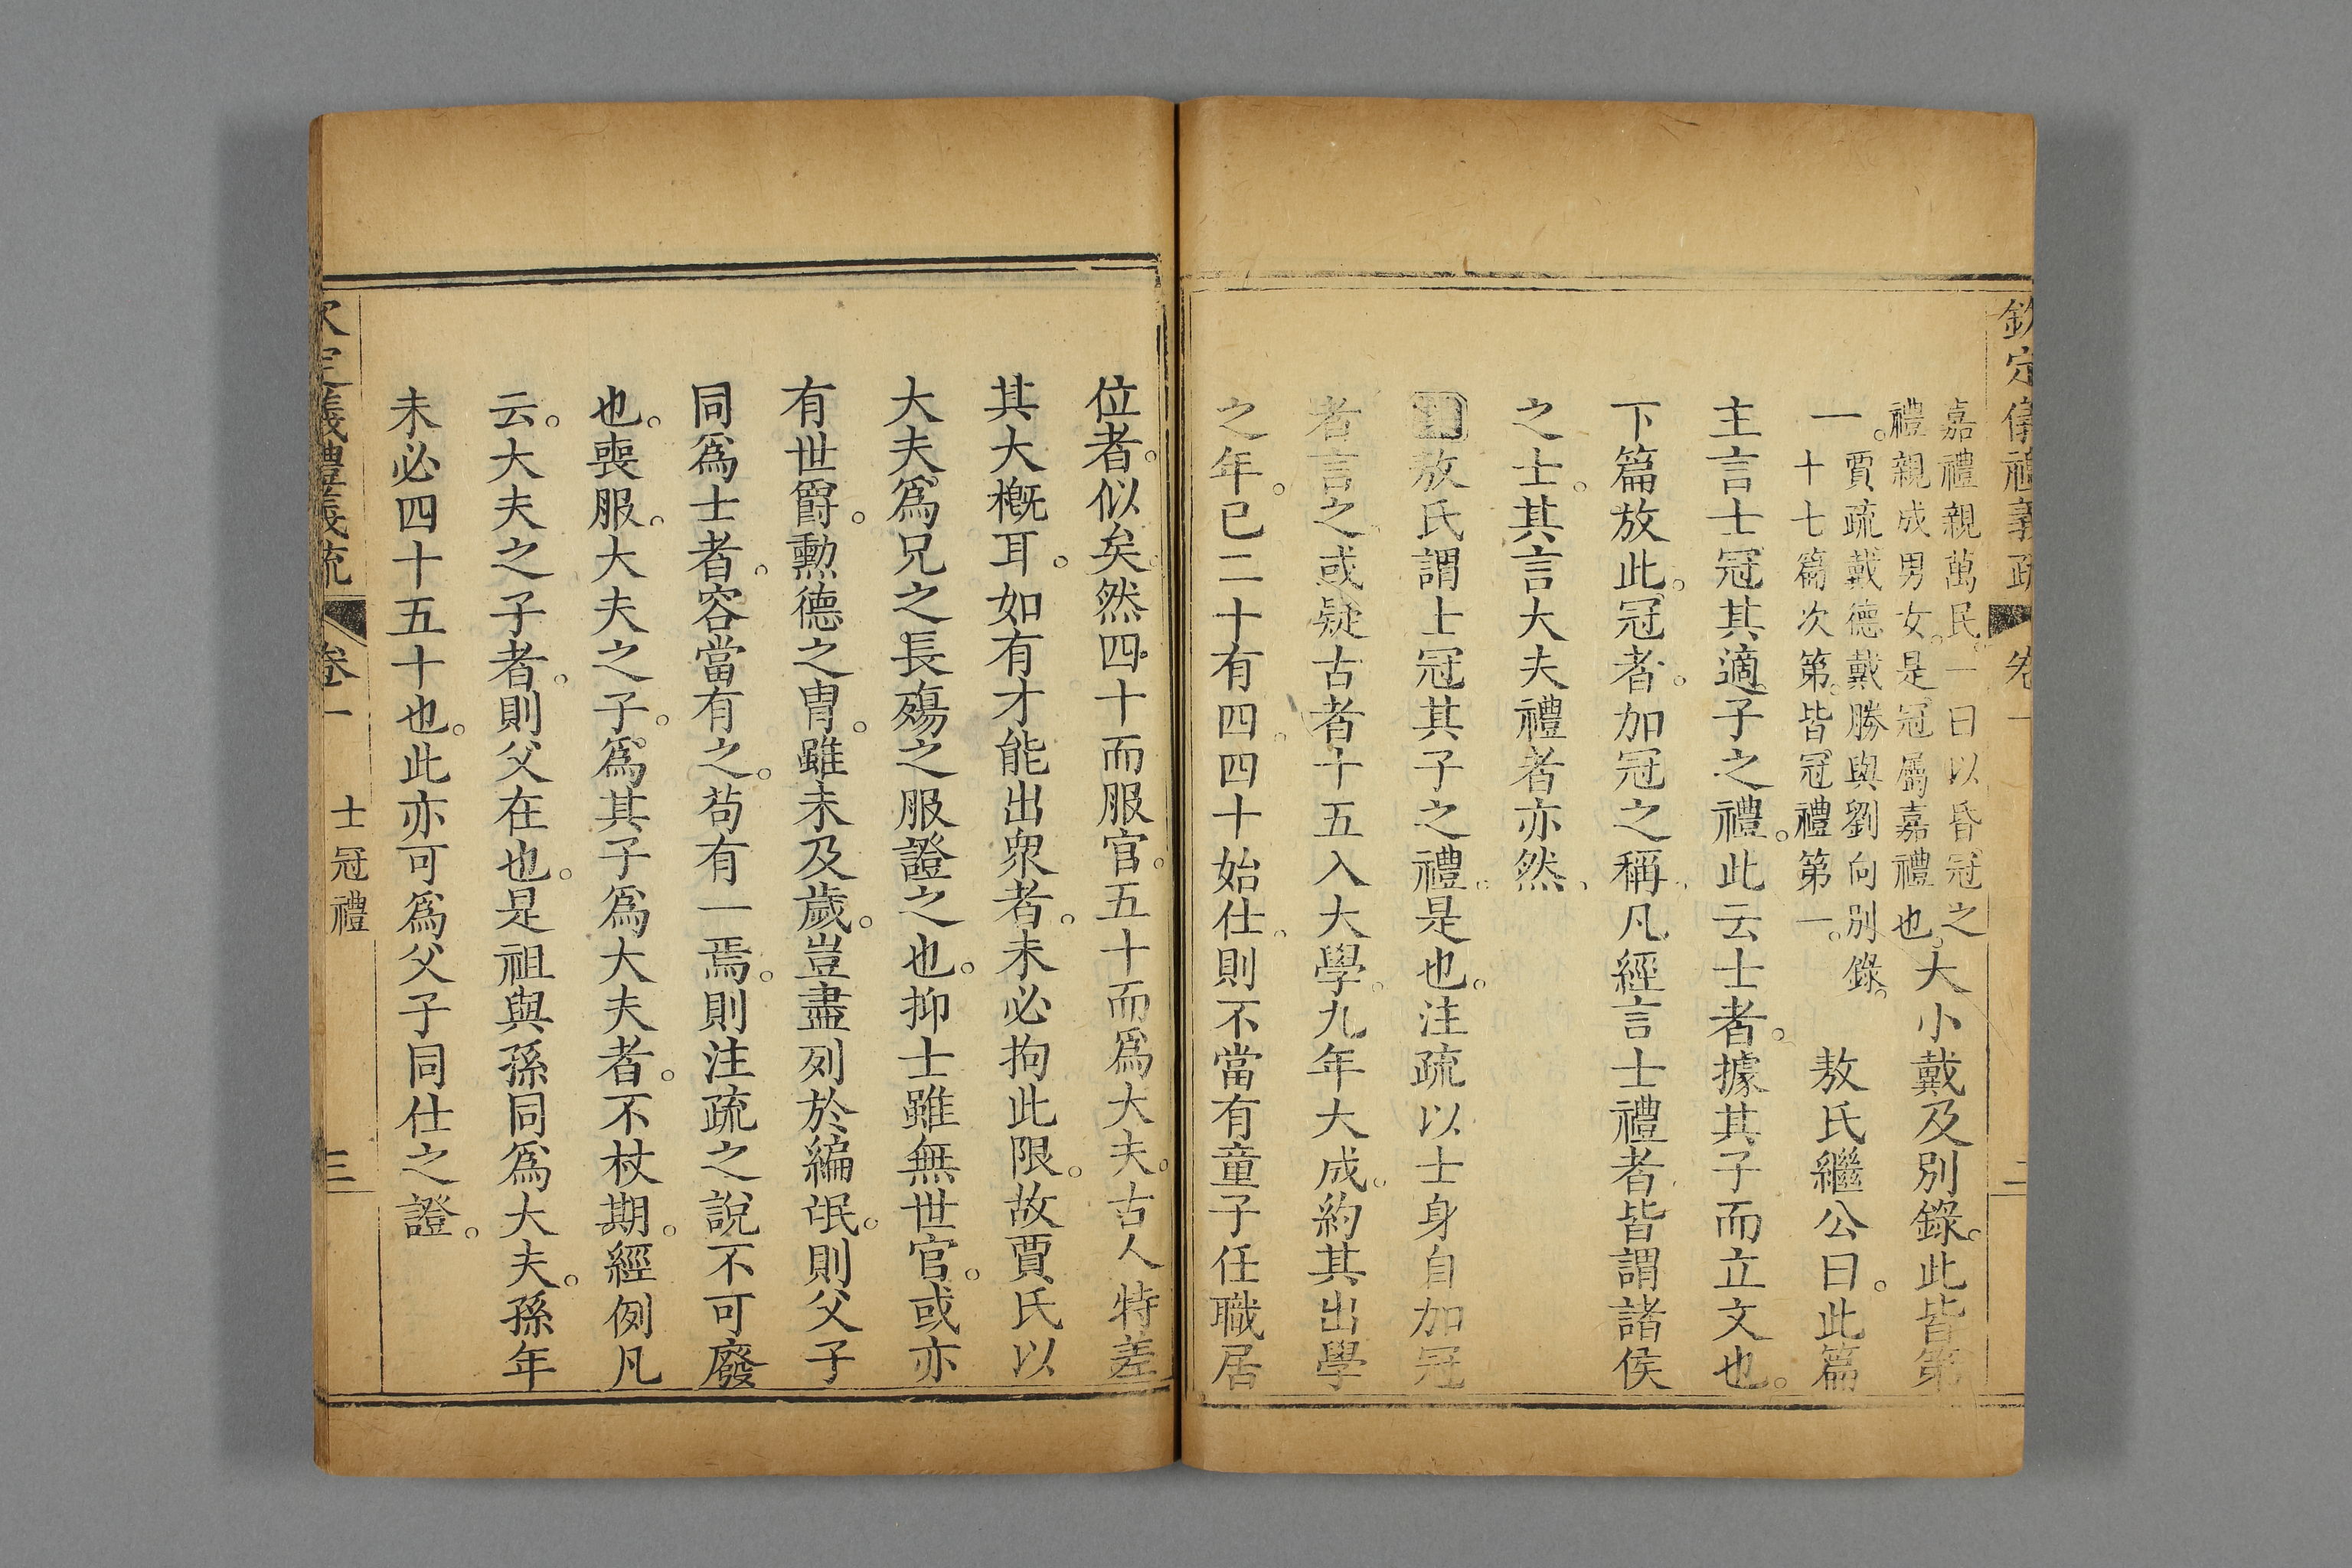 欽定儀禮義疏 卷一 二
嘉禮親萬民一曰以昏冠之
禮親成男女。是冠屬嘉禮也。
大小戴及別錄。此皆第
一。
賈疏戴德戴勝與劉向別錄。
十七篇次第。皆冠禮第一。
敖氏繼公曰。此篇
主言士冠其適子之禮。此云士者。據其子而立文也。
下篇放此。冠者。加冠之稱。凡經言士禮者皆謂諸侯
之士。其言大夫禮者亦然。
敖氏謂士冠其子之禮。是也。注疏以士身自加冠
者言之。或疑古者十五入大學。九年大成。約其出學
之年。已二十有四。四十始仕。則不當有童子任職居
位者。似矣。然四十而服官。五十而爲大夫。古人特差
其大槪耳。如有才能出衆者。未必拘此限。故賈氏以
大夫爲兄之長殤之服證之也。抑士雖無世官。或亦
有世爵。勳德之胄。雖未及歲。豈盡列於編氓。則父子
同爲士者。容當有之。茍有一焉。則注疏之說不可廢
也。喪服。大夫之子。爲其子爲大夫者。不杖期。經例凡
云。大夫之子者。則父在也。是祖與孫同爲大夫。孫年
未必四十五十也。此亦可爲父子同仕之證。
欽定儀禮義疏 卷一 士冠禮 三